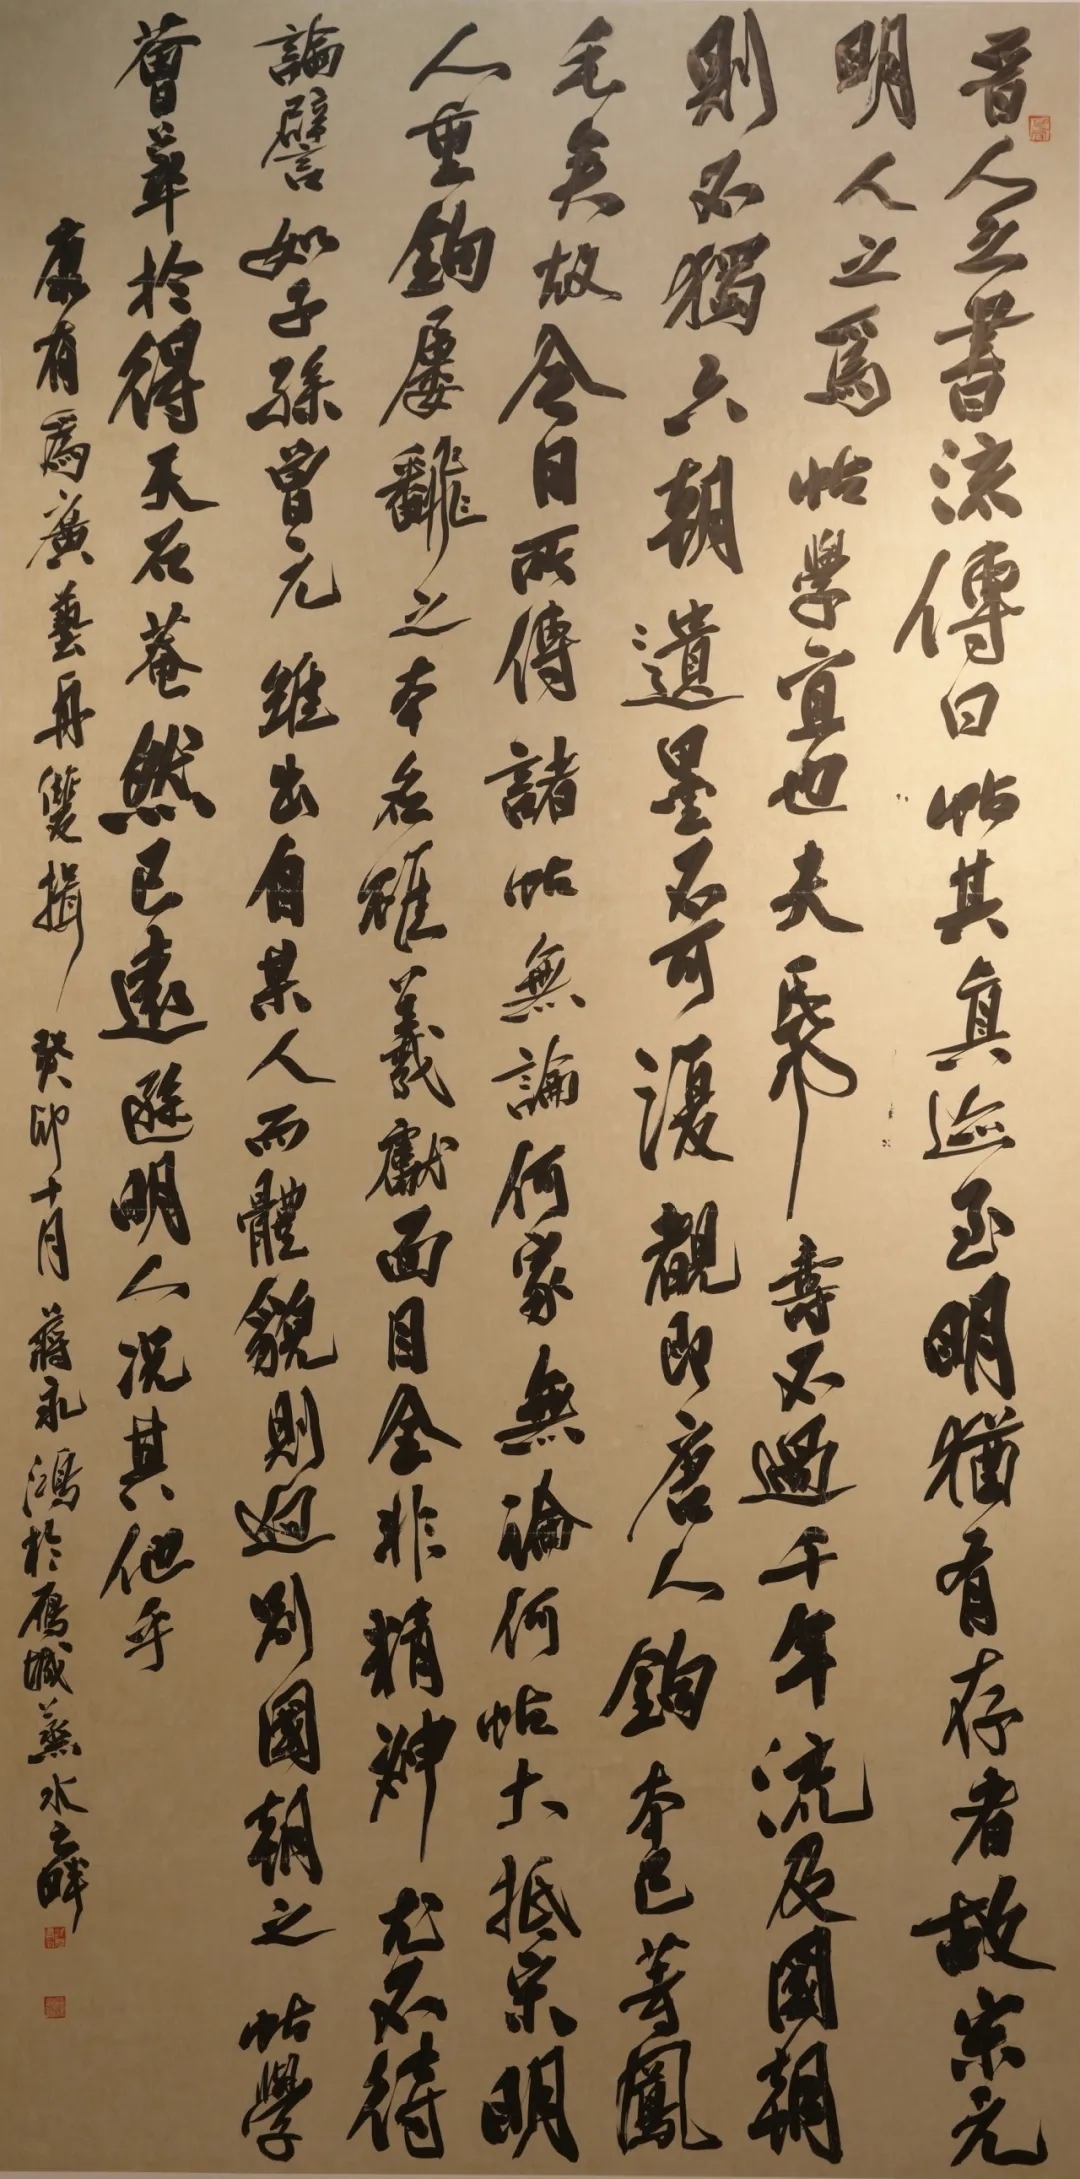 晉人之書流傳曰帖其真迹至明猶有存者故宋元
明人之爲帖學宜也夫紙壽不過千年流及國朝
則不獨六朝遺墨不可復觀即唐人鉤本已等鳳
毛矣故今日所傳諸帖無論何家無論何帖大抵宋明
人重鉤屢翻之本名雖羲獻面目全非精神尤不待
論譬如子孫曾元雖出自某人而體貌則迥別國朝之帖學
薈萃於得天石菴然已遠遜明人況其他乎
康有爲廣藝舟雙楫 癸卯十月 蔣永鴻於雁城蒸水之畔